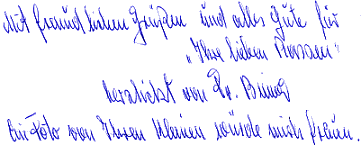 Mit freundlichen Grüßen und alles Gute für
„Ihre lieben
herzlichst von Dr.
Ein Foto von Ihren Kleinen würde mich freuen.